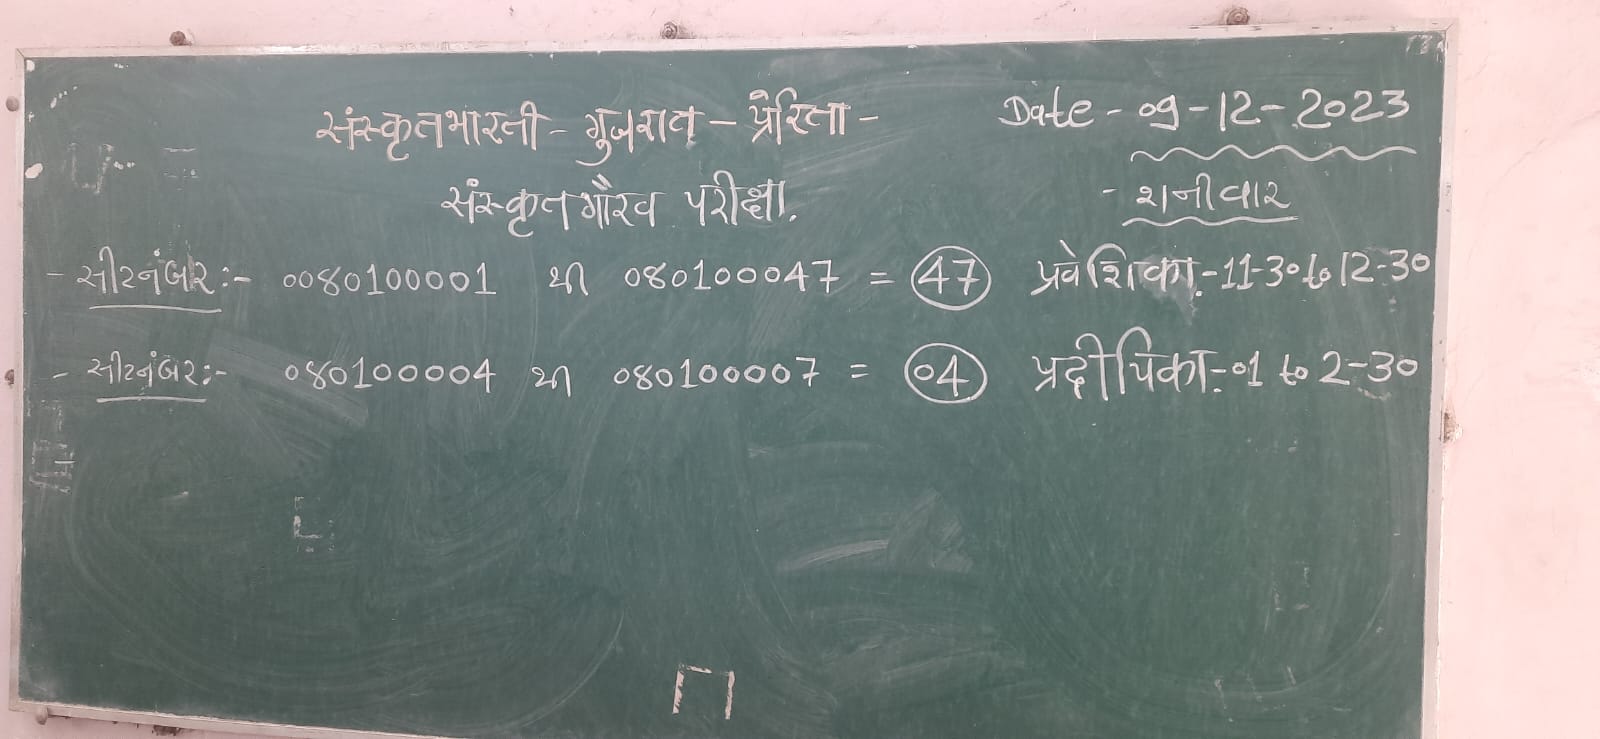 संस्कृतभारती - गुजरात - प्रेरिता -
Date - 09-12-2023
संस्कृतगौरव परीक्षा.
- शनीवार
- सीटनंबर :- 0080100001 થી 080100047 = 47 प्रवेशिका.-11-30 to 12-30
- सीटनंबर :- 080100004 થી 080100007 = 04 प्रदीपिका.-01 to 2-30